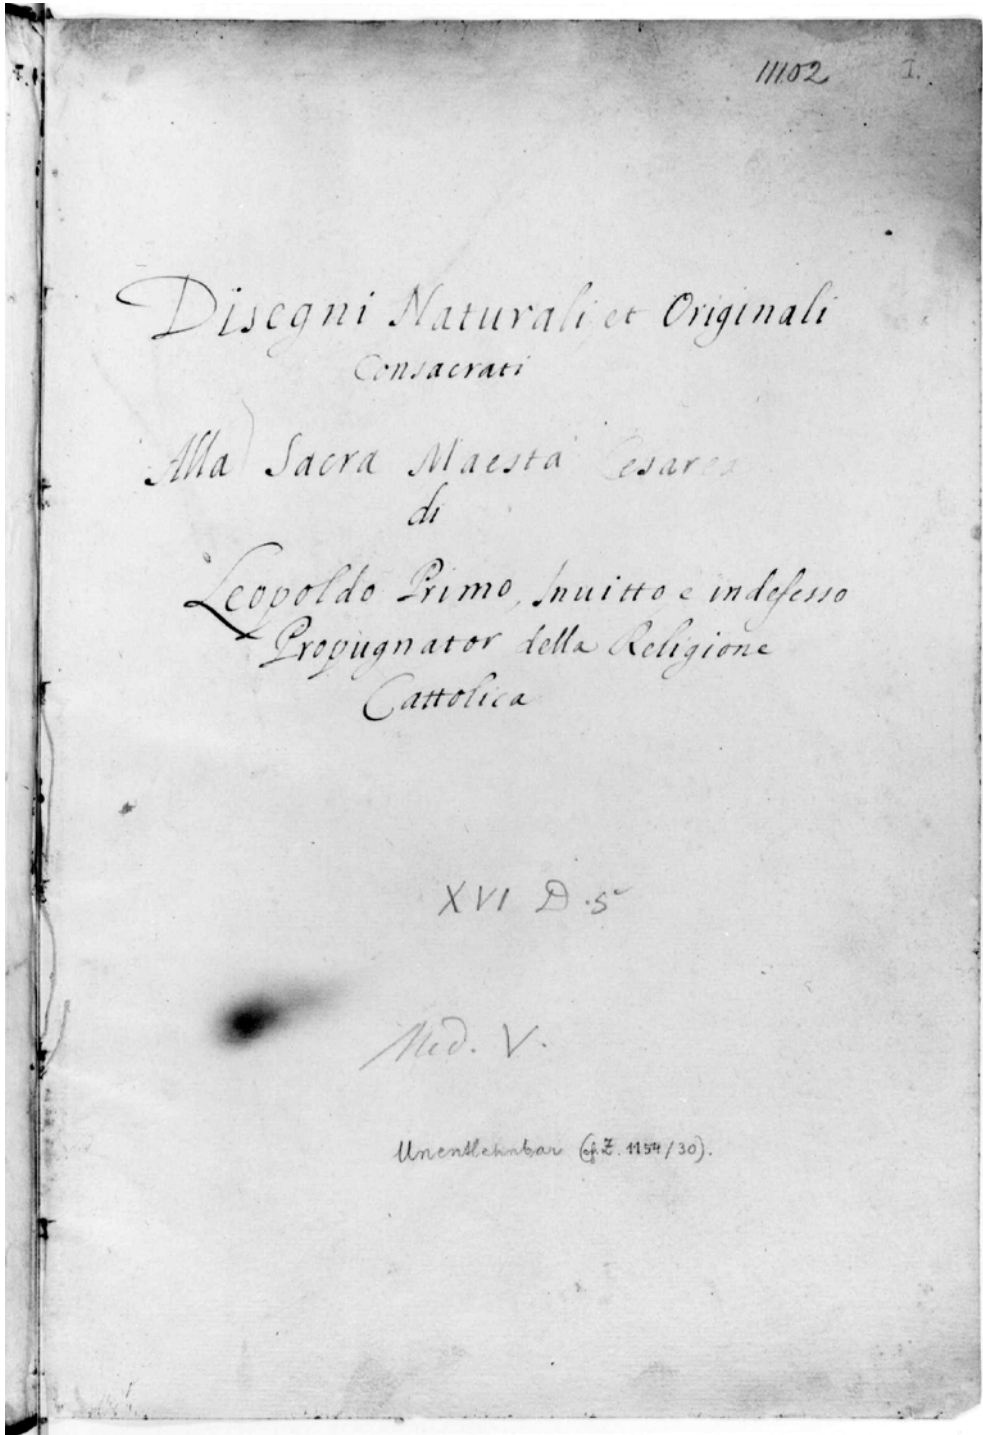 11102
I.
Disegni Naturali et Originali
Consacrati
Alla Sacra Maestà Cesarea
di
Leopoldo Primo, Invitto e indefesso
Propugnator della Religione
Cattolica
XVI D. 5
Med. V.
Unentlehnbar (cf. Z. 1154/30).